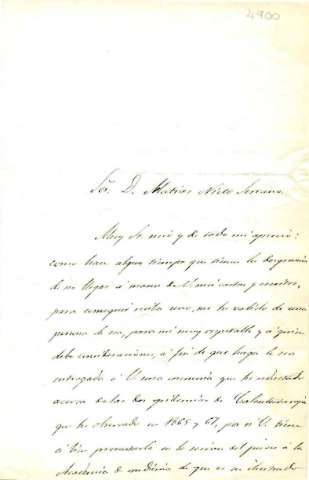 4900
Sr. D. Matias Nieto Serrano.
Muy Sr. mio y de todo mi aprecio:
como hace algun tiempo que tienen la desgracia
de no llegar a manos de V. mis cartas y escritos,
para conseguir esta vez, me he valido de una
persona de esa, para mi muy respetable y a quien
debo consideraciones, a fin de que haga le sea
entregada a V. una memoria que he redactado
acerca de las dos epidemias de
que he observado en 1865 y 67, por si V. tiene
a bien presentarla en la sesion del jueves á la
Academia de medicina de que es su ilustrado